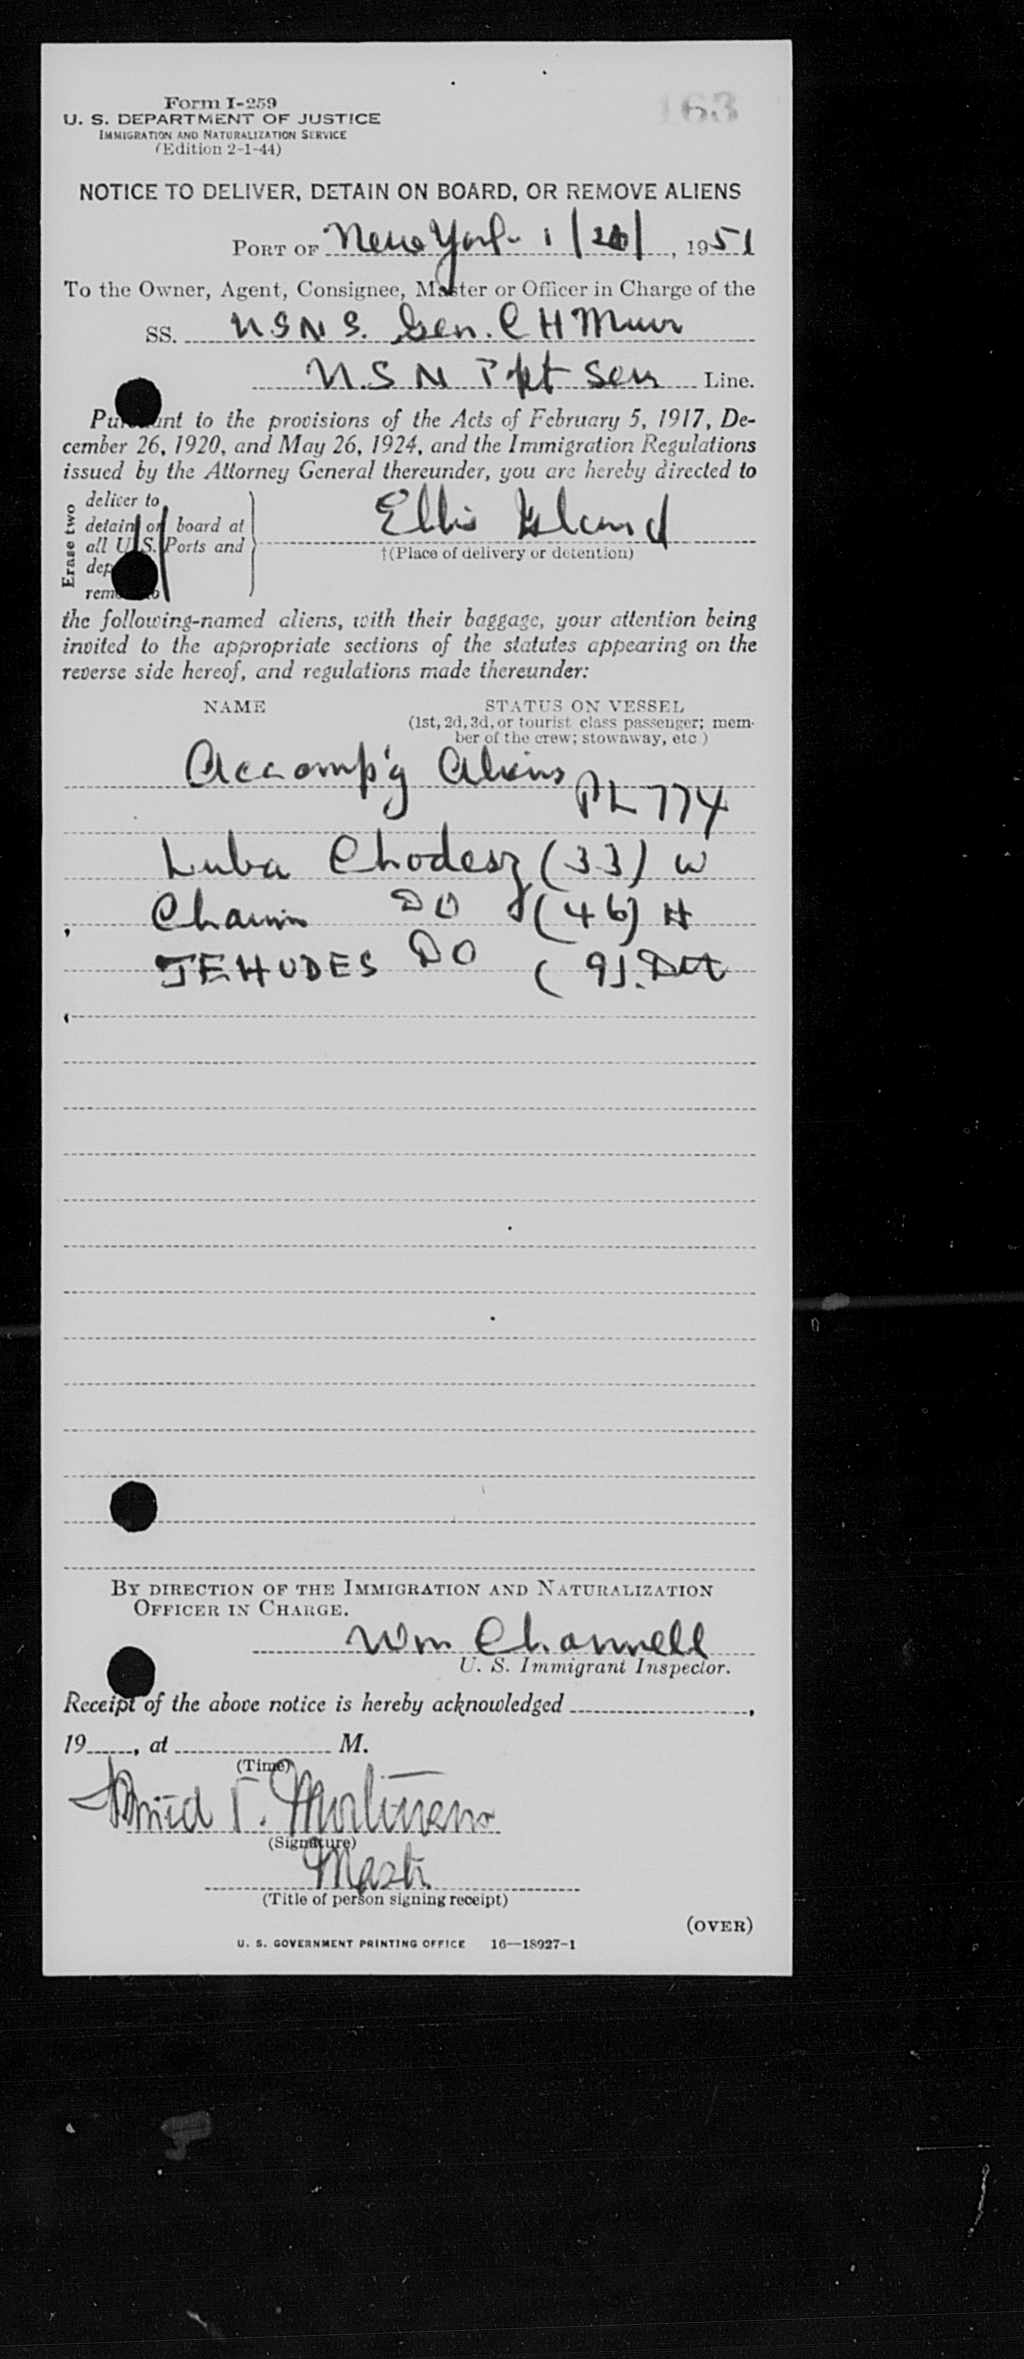 163
Form I-259
U. S. DEPARTMENT OF JUSTICE
IMMIGRATION AND NATURALIZATION SERVICE
(Edition 2-1-44)
NOTICE TO DELIVER, DETAIN ON BOARD, OR REMOVE ALIENS
PORT OF New York 1/ / , 1951
To the Owner, Agent, Consignee, Master or Officer in Charge of the
SS. U S N S. Gen. C H Muir
U.S N Tpt Serv Line.
Pursuant to the provisions of the Acts of February 5, 1917, De-
cember 26, 1920, and May 26, 1924, and the Immigration Regulations
issued by the Attorney General thereunder, you are hereby directed to
Erase two
deliver to
detain on board at
all U.S. Ports and
dep
remove to
Ellis Island
†(Place of delivery or detention)
the following-named aliens, with their baggage, your attention being
invited to the appropriate sections of the statutes appearing on the
reverse side hereof, and regulations made thereunder:
NAME STATUS ON VESSEL
(1st, 2d, 3d, or tourist class passenger; mem-
ber of the crew; stowaway, etc.)
Accomp'g Aliens
PL 774
Luba Chodesz (33) W
Chaim DO (46) H
JEHUDES DO (9). Dtr
BY DIRECTION OF THE IMMIGRATION AND NATURALIZATION
OFFICER IN CHARGE.
Wm Channell
U. S. Immigrant Inspector.
Receipt of the above notice is hereby acknowledged ,
19 , at M.
(Time)
(Signature)
(Title of person signing receipt)
(OVER)
U. S. GOVERNMENT PRINTING OFFICE 16—18927-1